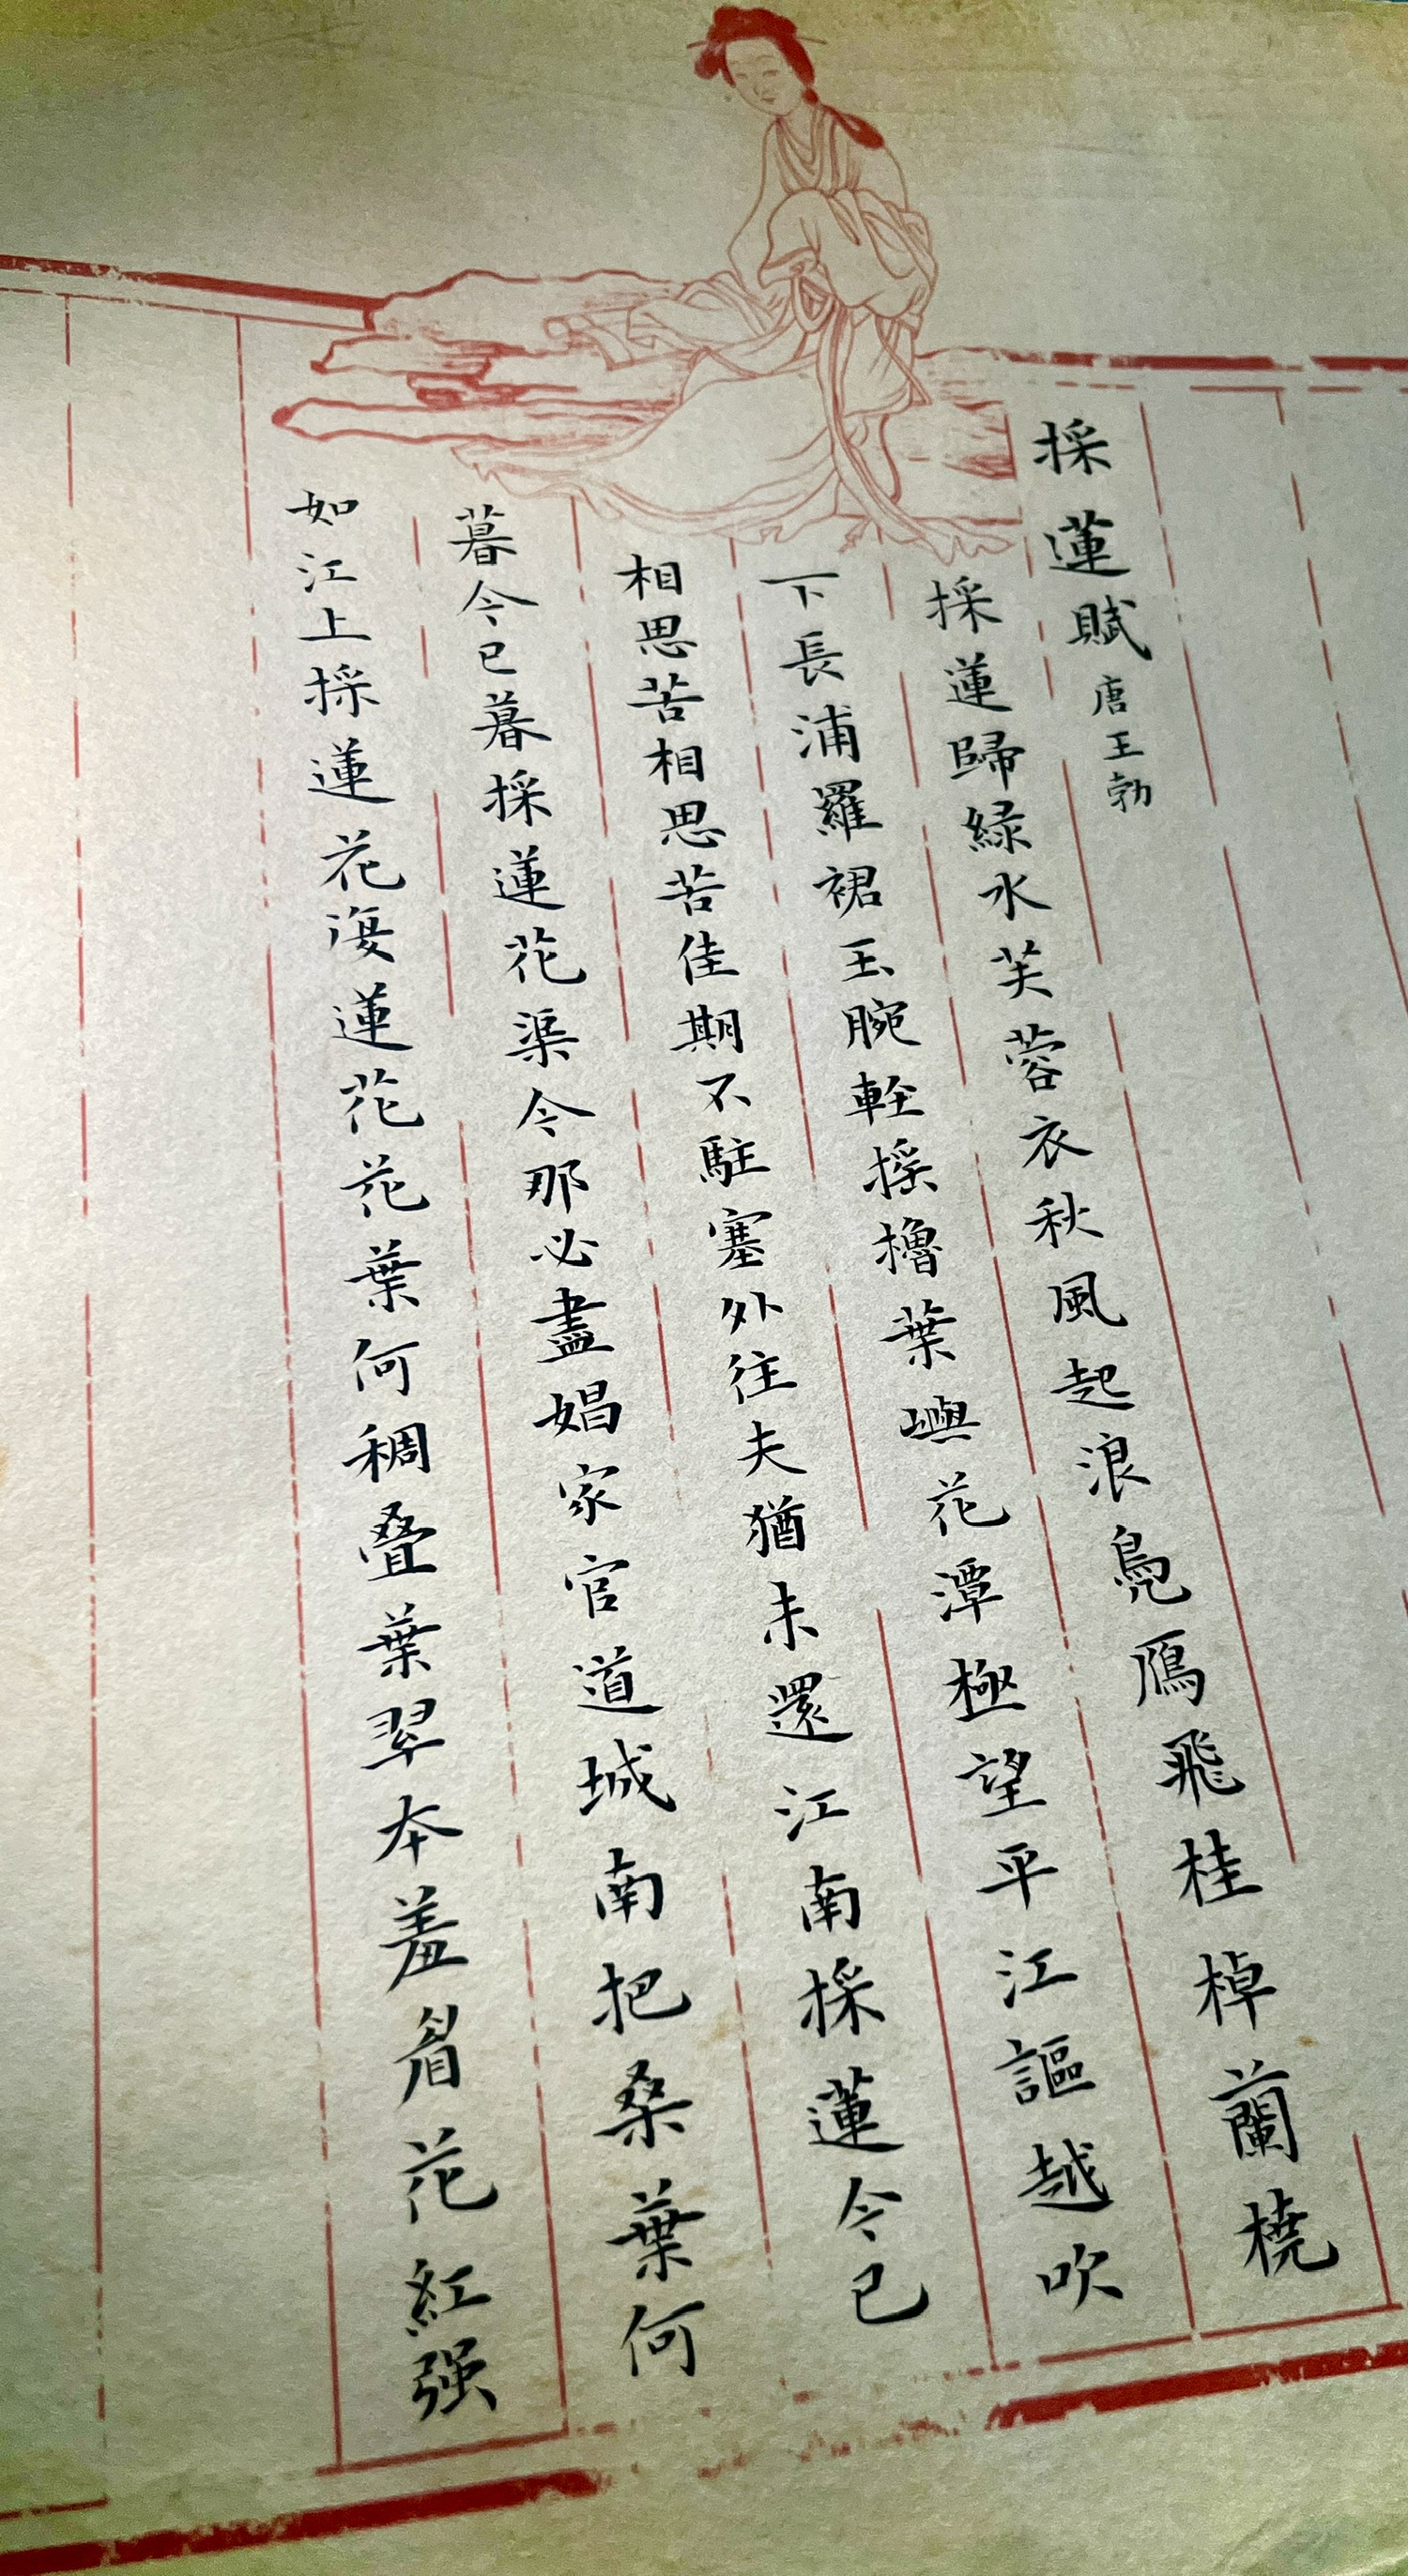 採蓮賦 唐王勃
採蓮歸綠水芙蓉衣秋風起浪鳧鴈飛桂棹蘭橈
下長浦羅裙玉腕輕搖櫓葉嶼花潭極望平江謳越吹
相思苦相思苦佳期不駐塞外往夫猶未還江南採蓮今已
暮今已暮採蓮花渠今那必盡娼家官道城南把桑葉何
如江上採蓮花渡蓮花花葉何稠疊葉翠本羞眉花紅强